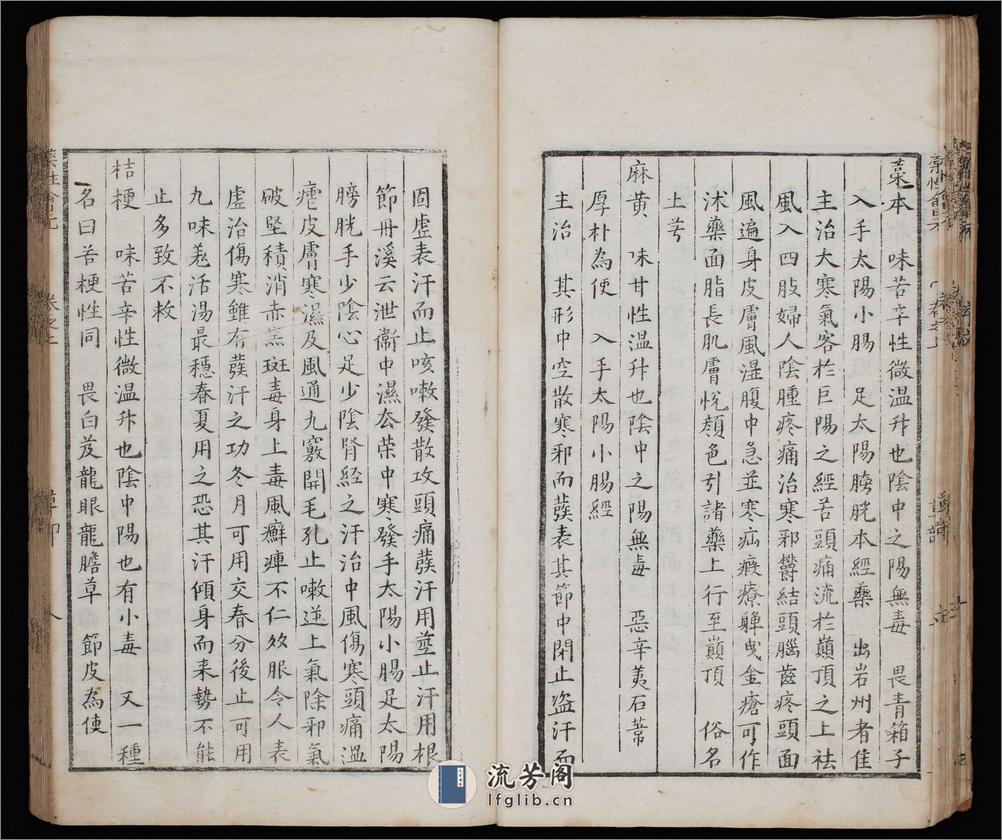 藁本　味苦辛性微温升也陰中之陽無毒　畏青箱子
入手太陽小腸　足太陽膀胱本經藥　出岩州者佳
主治大寒氣客於巨陽之經苦頭痛流於巔頂之上祛
風入四肢婦人陰腫疼痛治寒邪欝結頭腦齒疼頭面
風遍身皮膚風湿腹中急並寒疝瘕療軃曵金瘡可作
沭藥面脂長肌膚悅顏色引諸藥上行至巔頂　俗名
上芎
麻黄　味甘性温升也陰中之陽無毒　惡辛荑石葦
厚朴為使　入手太陽小腸經
主治　其形中空散寒邪而𤼵表其節中閉止盗汗而
固虚表汗而止咳嗽發散攻頭痛𤼵汗用莖止汗用根
節丹溪云泄衞中濕去荣中寒發手太陽小腸足太陽
膀胱手少陰心足少陰腎經之汗治中風傷寒頭痛温
瘧皮膚寒濕及風通九竅開毛孔止嗽逆上氣除邪氣
破堅積消赤黒斑毒身上毒風癬痺不仁久服令人表
虚治傷寒雖有𤼵汗之功冬月可用交春分後止可用
九味羗活湯最穩春夏用之恐其汗傾身而来勢不能
止多致不救
桔梗　味苦辛性微温升也陰中陽也有小毒　又一種
名曰苦梗性同　畏白芨龍眼龍膽草　節皮為使
藥性會元　卷之上
流芳阁
lfglib.cn